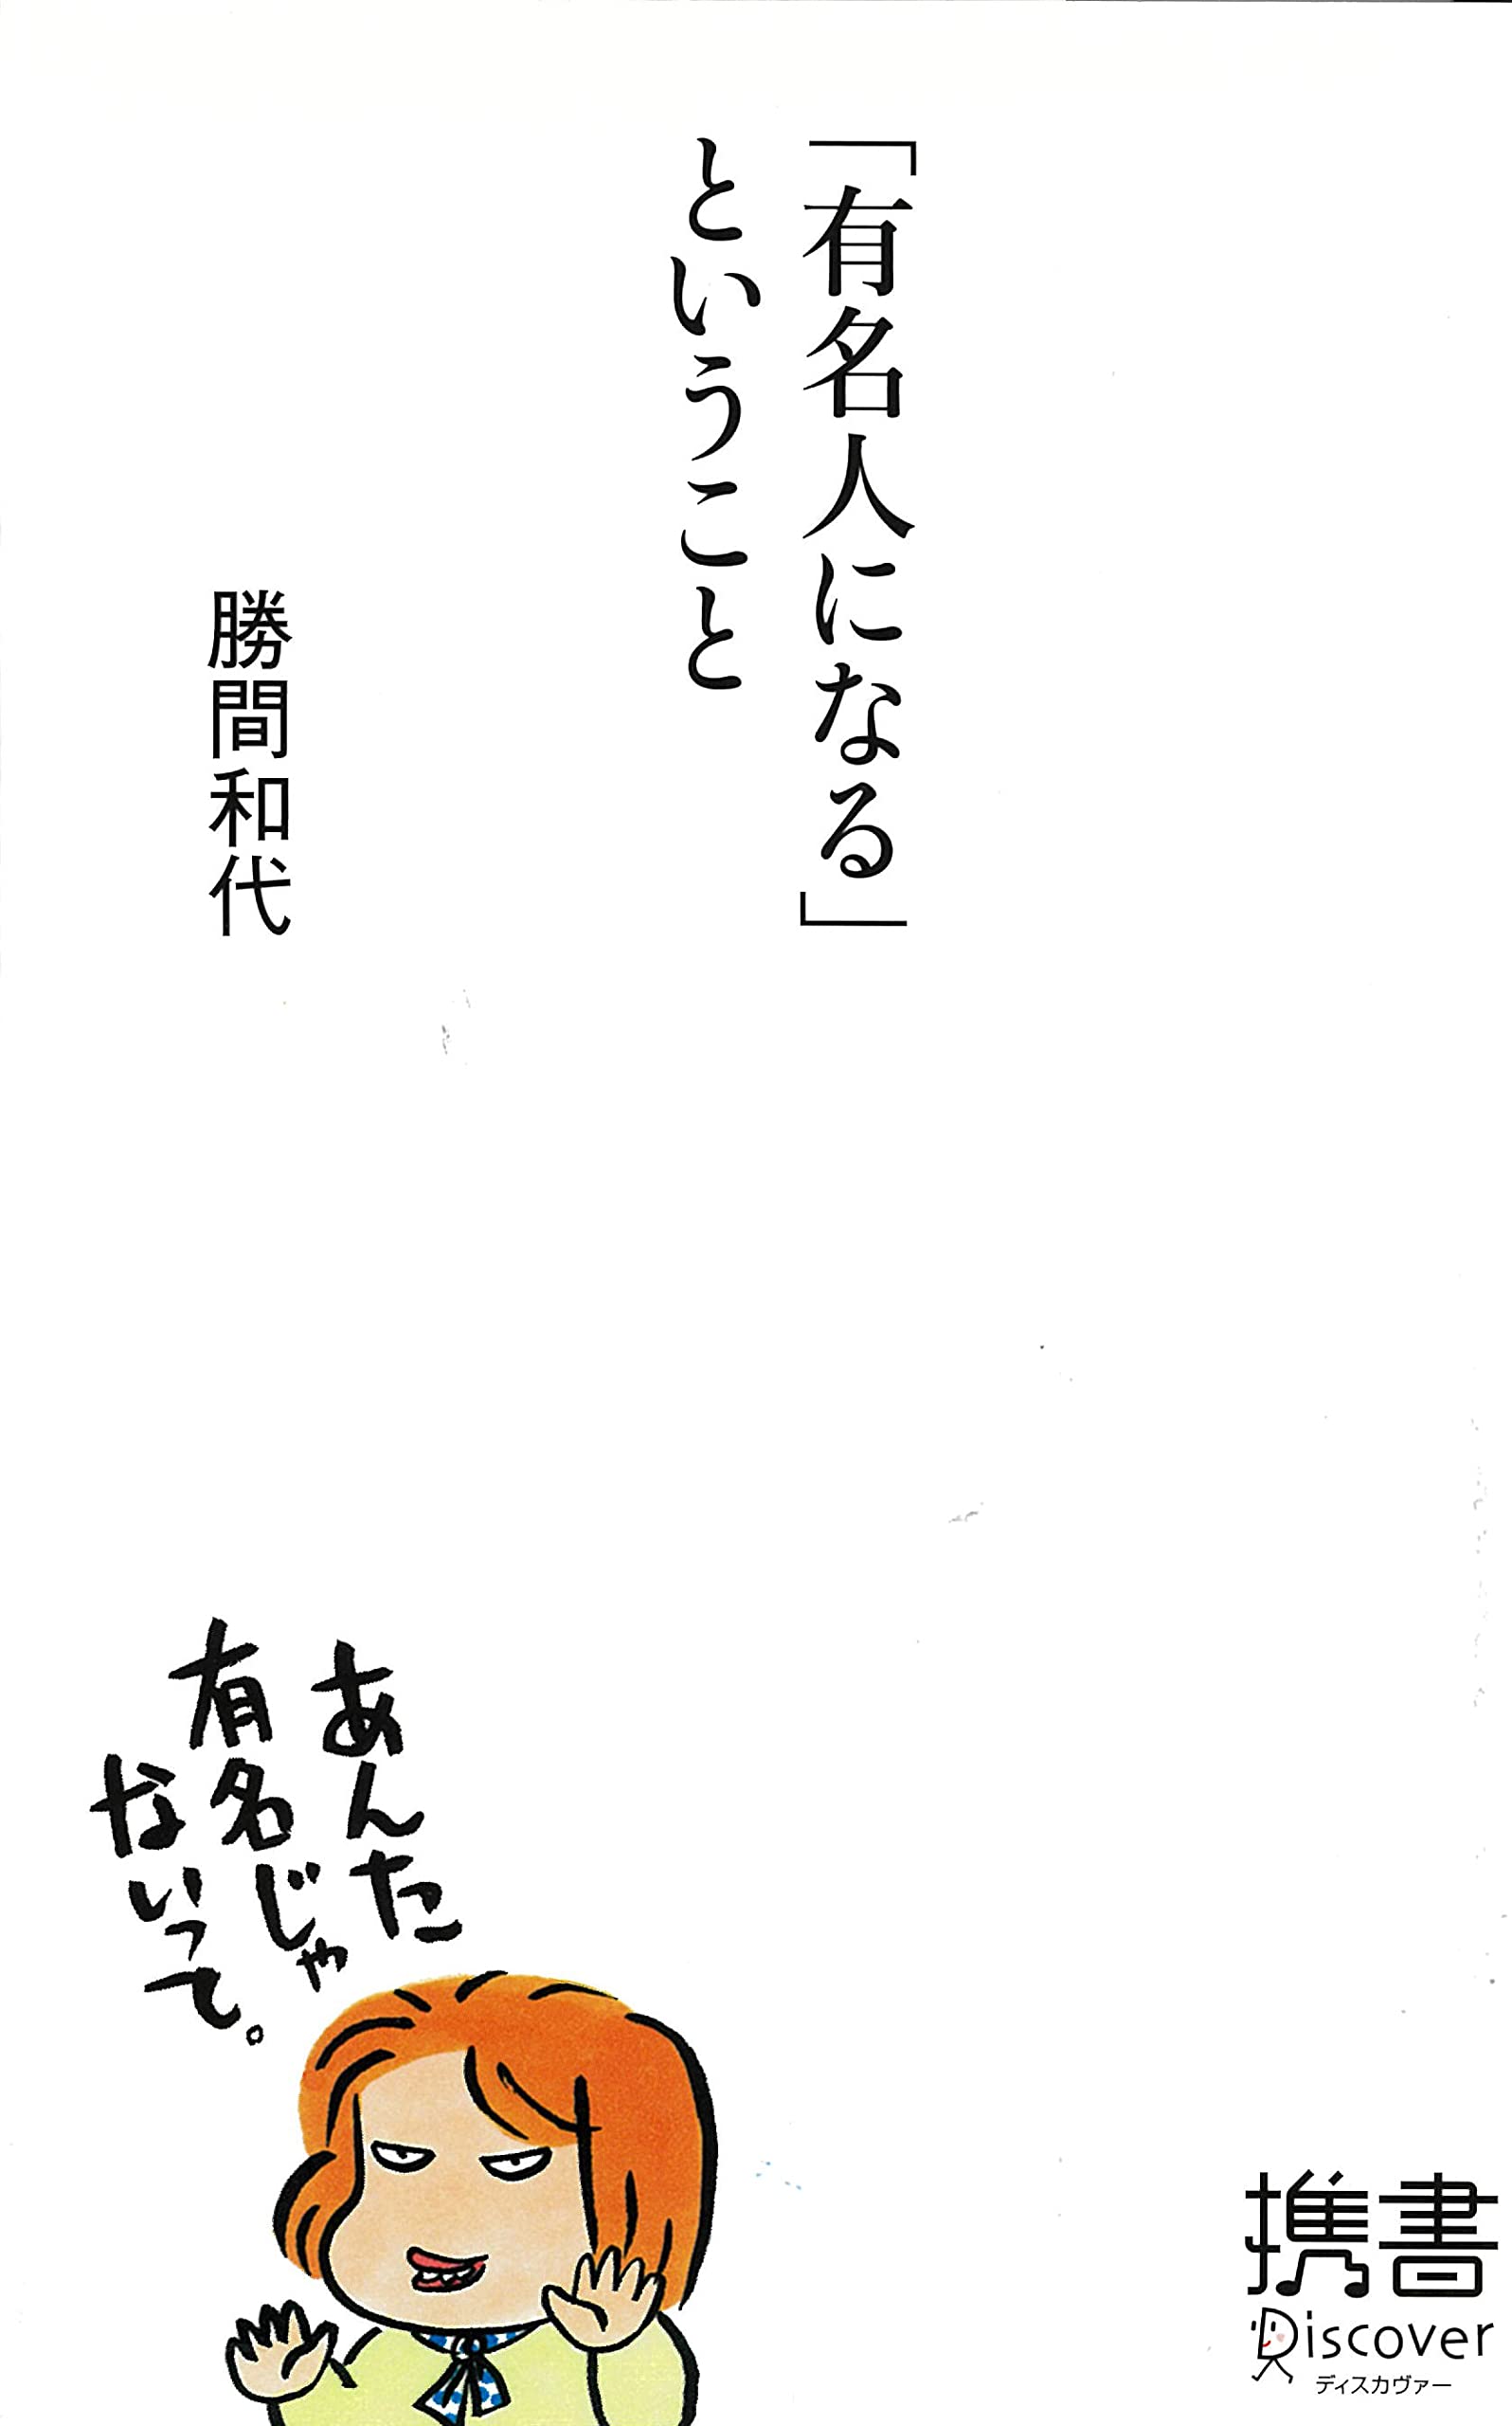 「有名人になる」
ということ
勝間和代
あんた
有名じゃ
ないって。
携書
Discover
ディスカヴァー